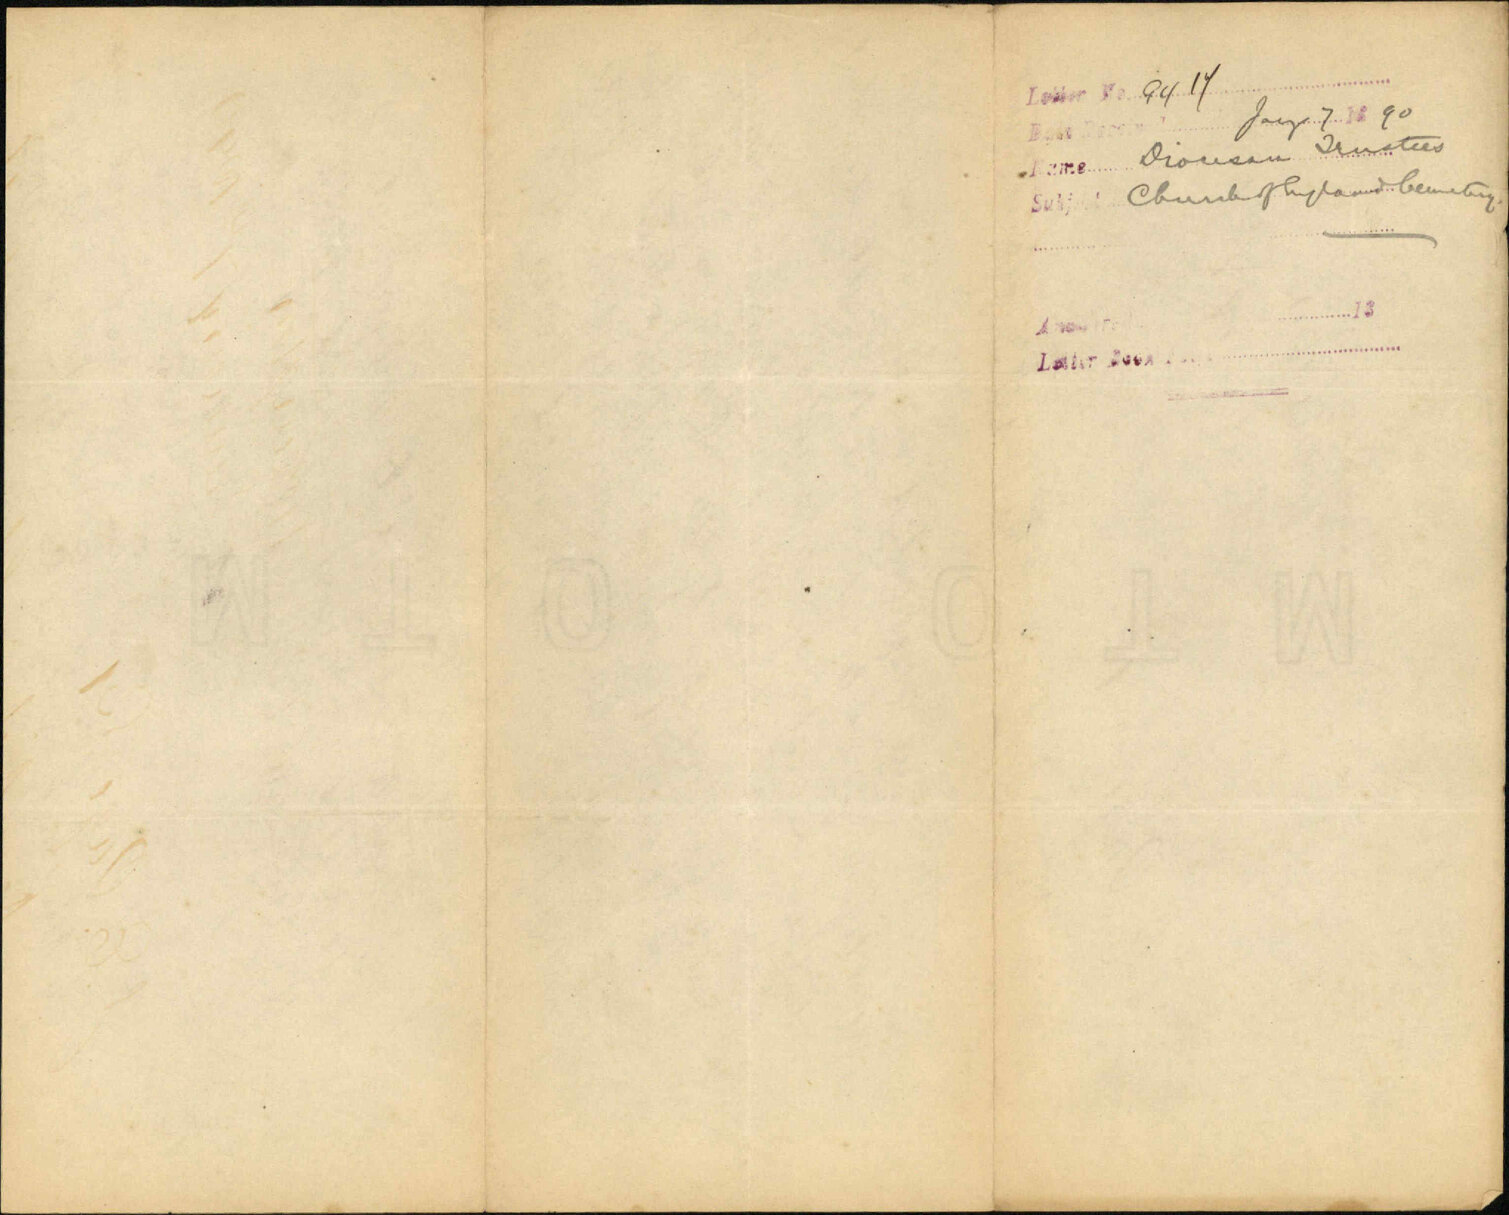 Letter No. 9417
Date Jany 7 1890
Name Diocesan Trustees
Subject Church of England Cemetery.
18
Letter Book